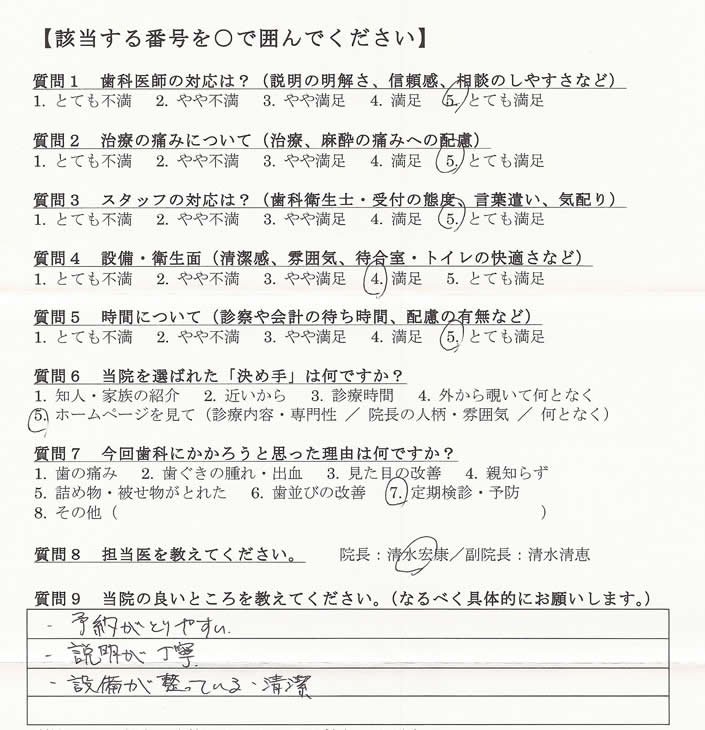 【該当する番号を○で囲んでください】
質問1 歯科医師の対応は?(説明の明解さ、信頼感、相談のしやすさなど)
1. とても不満 2. やや不満 3. やや満足 4. 満足 5. とても満足
質問2 治療の痛みについて(治療、麻酔の痛みへの配慮)
1. とても不満 2. やや不満 3. やや満足 4. 満足 5. とても満足
質問3 スタッフの対応は?(歯科衛生士・受付の態度、言葉遣い、気配り)
1. とても不満 2. やや不満 3. やや満足 4. 満足 5. とても満足
質問4 設備・衛生面(清潔感、雰囲気、待合室・トイレの快適さなど)
1. とても不満 2. やや不満 3. やや満足 4. 満足 5. とても満足
質問5 時間について(診察や会計の待ち時間、配慮の有無など)
1. とても不満 2. やや不満 3. やや満足 4. 満足 5. とても満足
質問6 当院を選ばれた「決め手」は何ですか?
1. 知人・家族の紹介 2. 近いから 3. 診療時間 4. 外から覗いて何となく
5. ホームページを見て(診療内容・専門性 / 院長の人柄・雰囲気 / 何となく)
質問7 今回歯科にかかろうと思った理由は何ですか?
1. 歯の痛み 2. 歯ぐきの腫れ・出血 3. 見た目の改善 4. 親知らず
5. 詰め物・被せ物がとれた 6. 歯並びの改善 7. 定期検診・予防
8. その他( )
質問8 担当医を教えてください。 院長:清水宏康/副院長:清水清恵
質問9 当院の良いところを教えてください。(なるべく具体的にお願いします。)
- 予約がとりやすい.
- 説明が丁寧.
- 設備が整っている・清潔